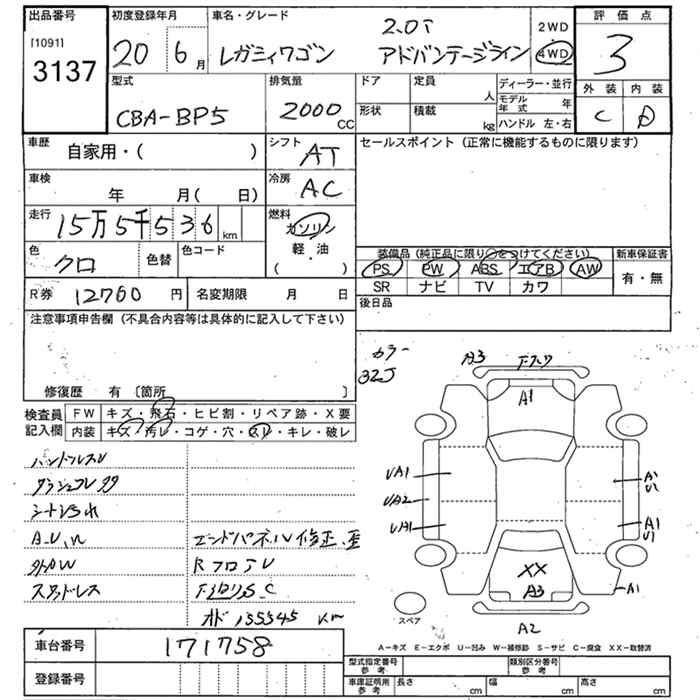 出品番号 初度登録年月 車名・グレード 2WD 評価点
[1091] 3137 20 6月 レガシィワゴン 2.0i アドバンテージライン 4WD 3
型式 排気量 ドア 定員 人 ディーラー・並行 外装 内装
CBA-BP5 2000cc 形状 積載 kg モデル年式 年 C D
ハンドル 左・右
車歴 自家用・( ) シフト AT セールスポイント（正常に機能するものに限ります）
車検 年 月( 日) 冷房 AC
走行 15万5千536km 燃料 ガソリン 軽・油 ( )
色 クロ 色替 色コード 装備品（純正品に限り○をつけてください） 新車保証書
PS PW ABS エアB AW 有・無
SR ナビ TV カワ
R券 12760円 名変期限 月 日 後日品
注意事項申告欄（不具合内容等は具体的に記入して下さい）
カラー 32J
修復歴 有〔箇所 〕
検査員記入欄 FW キズ・飛石・ヒビ割・リペア跡・X要
内装 キズ・汚レ・コゲ・穴・スレ・キレ・破レ
ハンドルスレ
A3
A1
UA1
UA2
UA1
A1 U1
A1 U1
XX
A3
A1
A2
エンドパネル修正、歪
外AW
スタッドレス
オド 155545 km
スペア
A-キズ E-エクボ U-凹み W-補修跡 S-サビ C-腐食 XX-取替済
車台番号 171758
登録番号
型式指定番号 参考 類別区分番号 参考
車庫証明用 参考 長さ cm 幅 cm 高さ cm